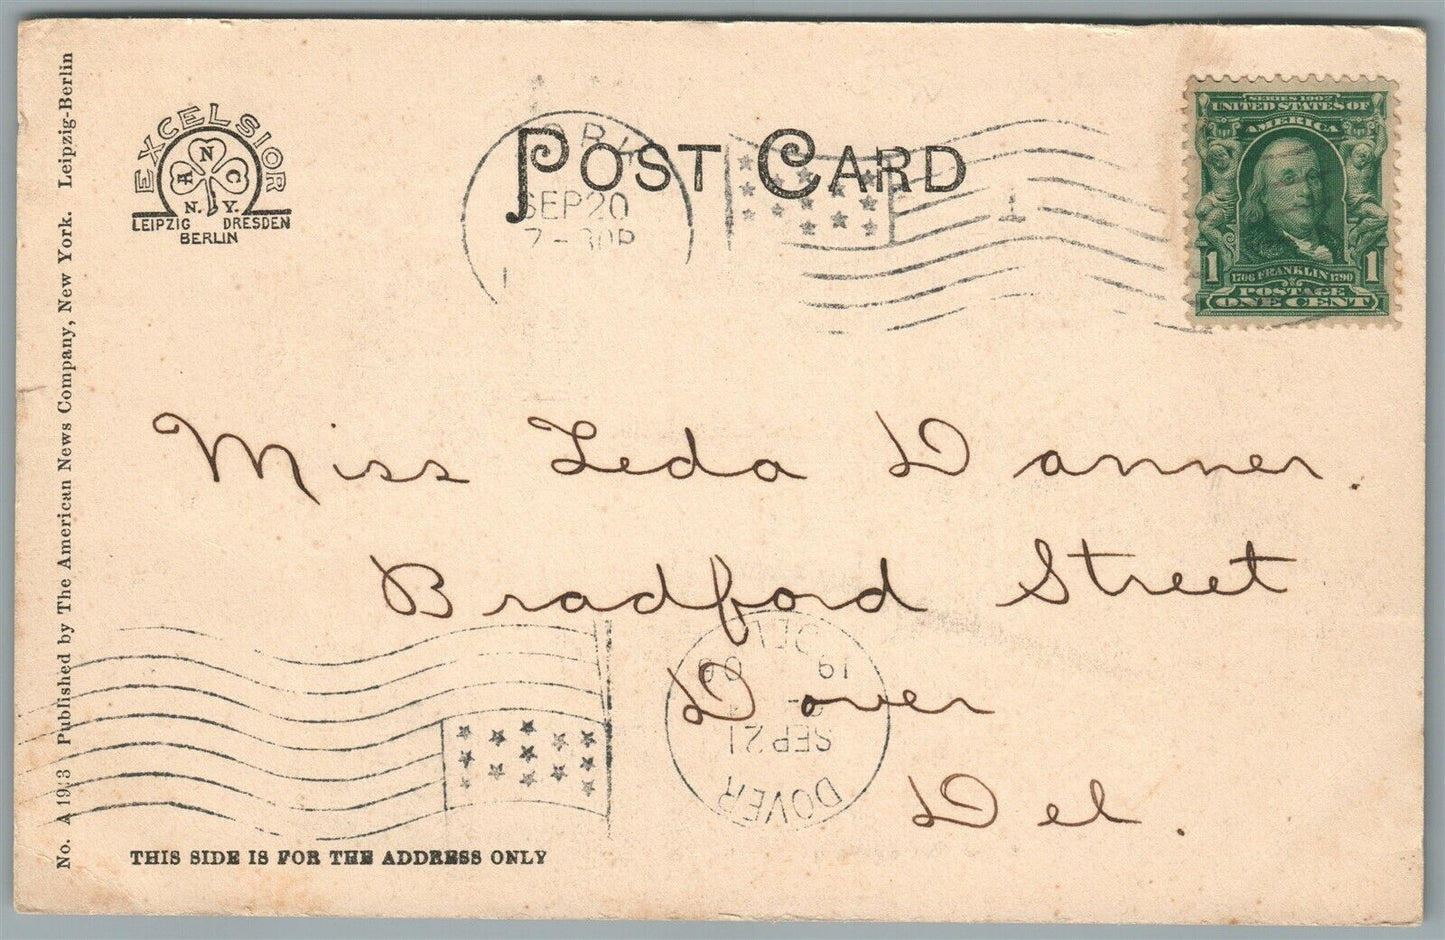 No. A 1913 Published by The American News Company, New York. Leipzig-Berlin
EXCELSIOR
A N C
N. Y.
LEIPZIG DRESDEN
BERLIN
POST CARD
SEP 20
7-30P
1
SERIES 1902
UNITED STATES OF
AMERICA
1 1706 FRANKLIN 1790 1
POSTAGE
ONE CENT
Miss Leda Danner.
Bradford Street
Dover
Del.
DOVER
SEP 21
19 06
DEL.
THIS SIDE IS FOR THE ADDRESS ONLY